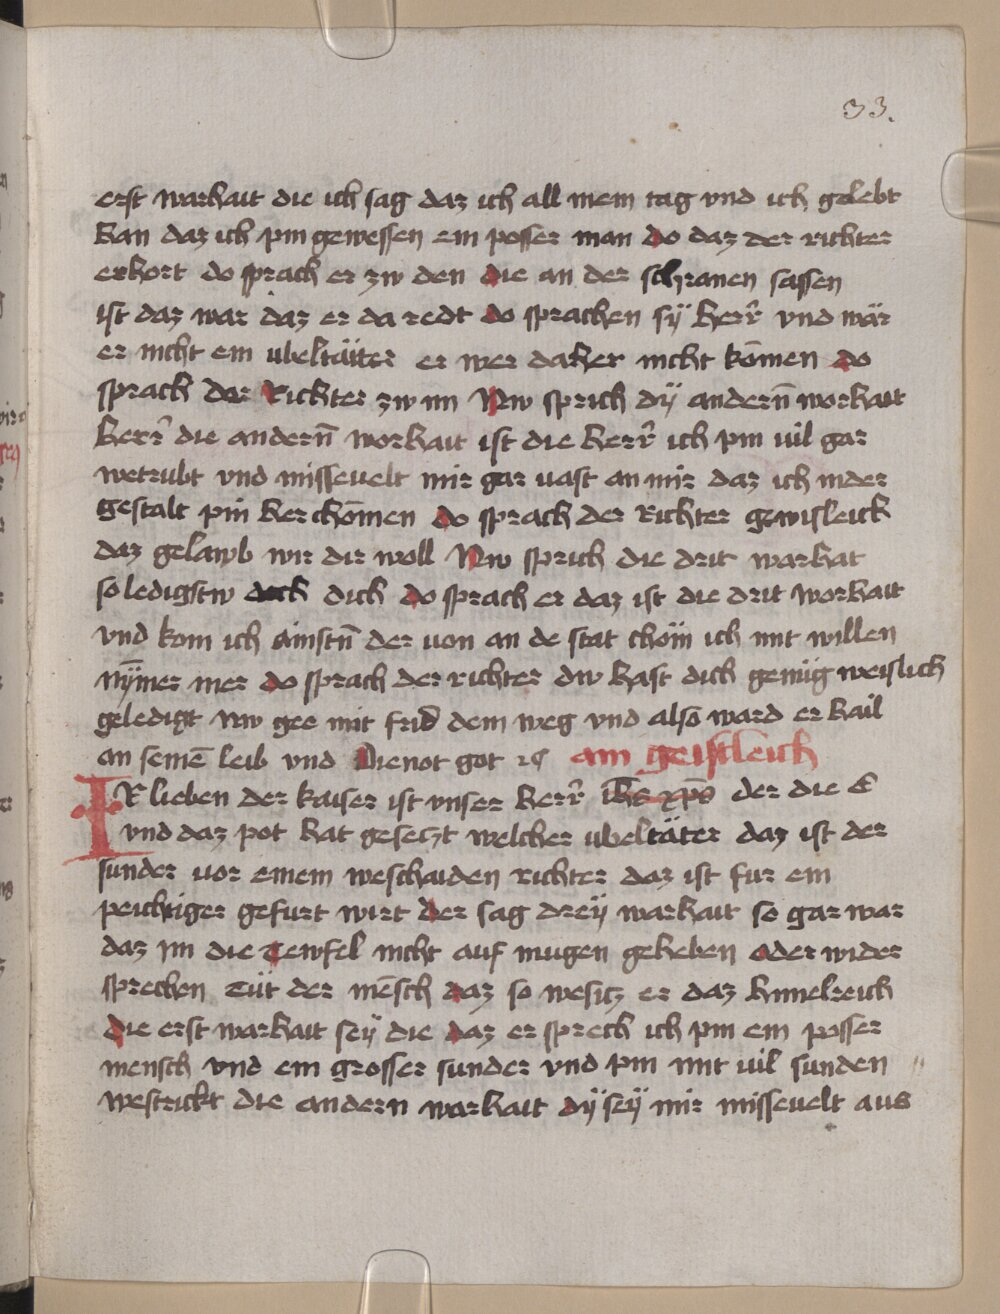 33.
erst warhait die ich sag daz ich all mein tag vnd ich gelebt
han daz ich pin gewessen ein posser man do daz der richter
erhort do sprach er zw den die an der schranen sassen
ist daz war daz er da redt do sprachen sÿ herr̄ vnd wär
er nicht ein ubeltäter er wer daher nicht kōmen do
sprach der Richter zw im Nw sprich dÿ andern̄ worhait
herr̄ die andern̄ worhait ist die herr̄ ich pin uil gar
wetrubt vnd misseuelt mir gar uast an mir daz ich in der
gestalt pin her chōmen do sprach der Richter gewisleich
daz gelawb wir dir woll Nw sprich die drit warhat
so ledigstw dich do sprach er daz ist die drit worhait
vnd kom ich ainstn̄ der uon an de stat chöm ich mit willen
nym̄er mer do sprach der richter dw hast dich genüg weislich
geledigt nw gee mit frid dem weg vnd also ward er hail
an seinē leib vnd Dienot got ꝛc̄ ain geistleich
IR lieben der kaiser ist vnser herr̄ ihs xps der die E
vnd daz pot hat geseczt welcher ubeltäter daz ist der
sunder uor einem weschaiden richter daz ist fur ein
peichtiger gefurt wirt der sag dreÿ warhait so gar war
daz im die tewfel nicht auf mugen geheben oder wider
sprechen Tüt der mēsch daz so wesicz er daz himelreich
die erst warhait seÿ die daz er sprech ich pin ein posser
mensch vnd ein grosser sunder vnd pin mit uil sunden
westrickt die andern warhait dÿ seÿ mir misseuelt aus